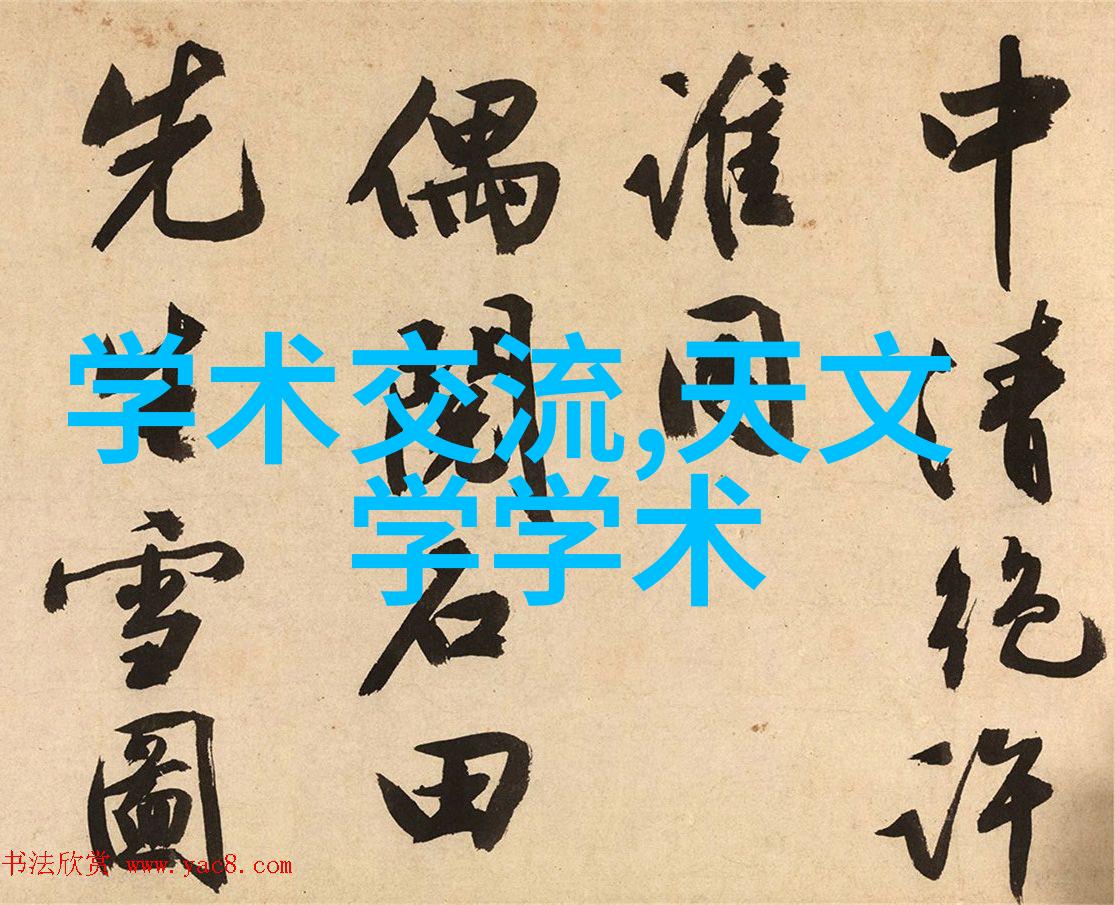 中清絶許
誰同
偶閱石田
先生雪圖
学术交流,天文
学学术
书法欣赏 www.yac8.com